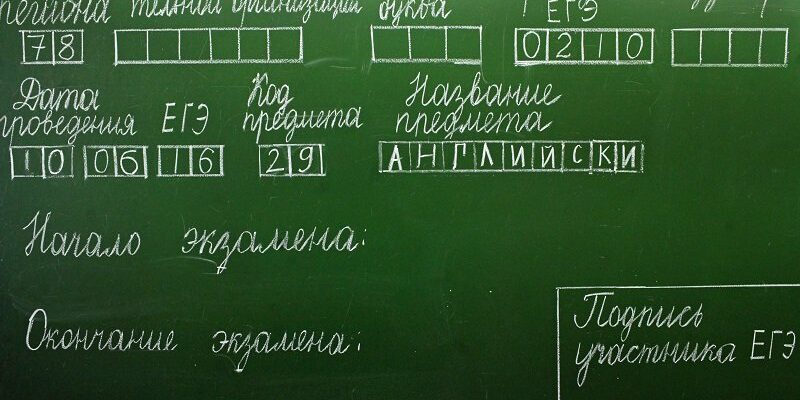 региона тельной организации буква ЕГЭ
78 0210
Дата проведения ЕГЭ Код предмета Название предмета
10 06 16 29 АНГЛИЙСКИ
Начало экзамена:
Окончание экзамена:
Подпись
участника ЕГЭ